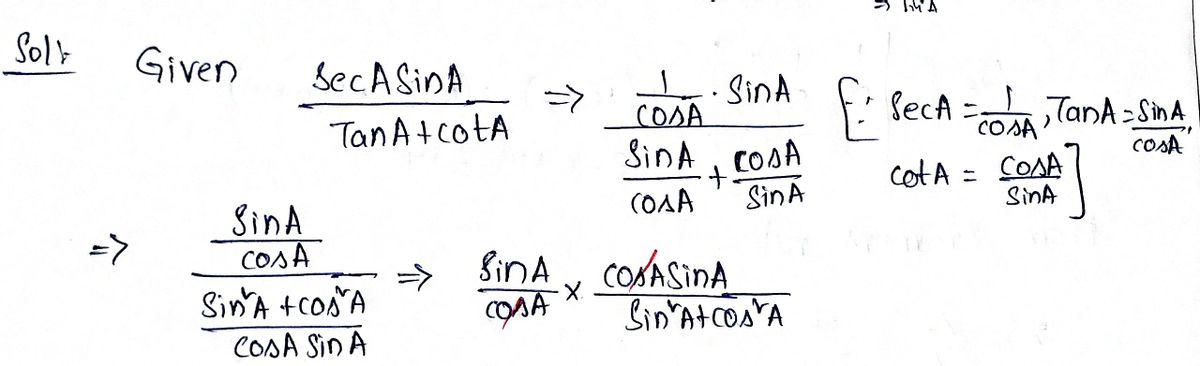 Sol:
Given SecA SinA / TanA + cotA => 1/cosA . SinA / SinA/cosA + cosA/SinA [∵ SecA = 1/cosA, TanA = SinA/cosA,
cotA = cosA/SinA]
=> SinA/cosA / Sin²A + cos²A/cosA SinA => SinA/cosA × cosA SinA/Sin²A + cos²A